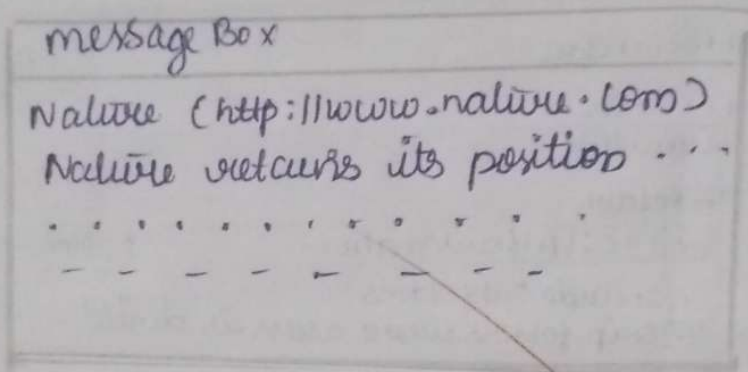 message Box
Nature (http://www.nature.com)
Nature retains its position ...
. . . . . . . . . . .
- - - - - - - -